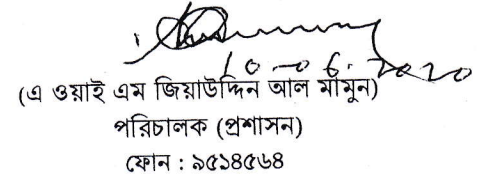 10-06-2020
(এ ওয়াই এম জিয়াউদ্দিন আল মামুন)
পরিচালক (প্রশাসন)
ফোন : ৯৫১৪৫৬৪